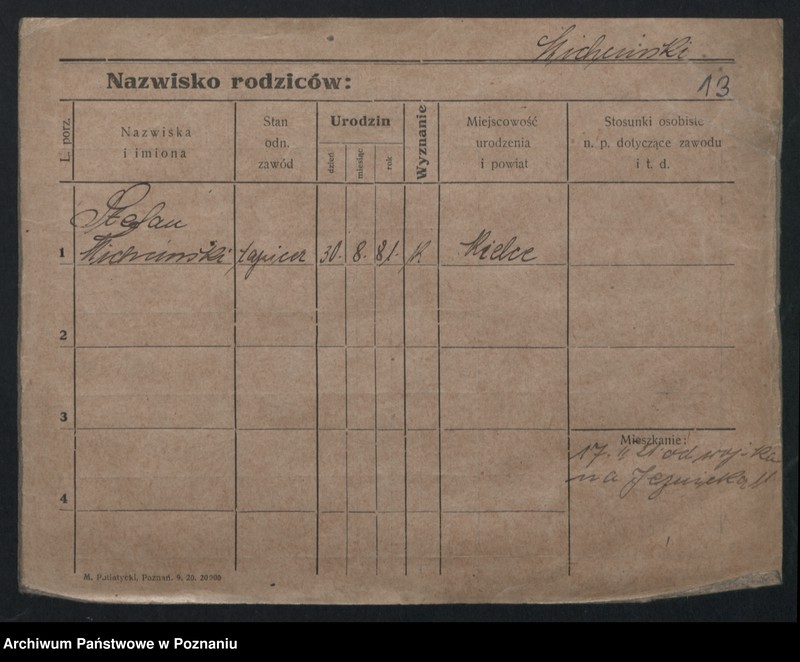 Nazwisko rodziców:
13
L. porz.
Nazwiska
i imiona
Stan
odn.
zawód
Urodzin
dzień
miesiąc
rok
Wyznanie
Miejscowość
urodzenia
i powiat
Stosunki osobiste
n. p. dotyczące zawodu
i t. d.
Stefan
1
tapicer
30.
8.
81.
k.
Kielce
2
3
Mieszkanie:
17. 21 od wojska
na
4
M. Putiatycki, Poznań. 9. 20. 20 000
Archiwum Państwowe w Poznaniu